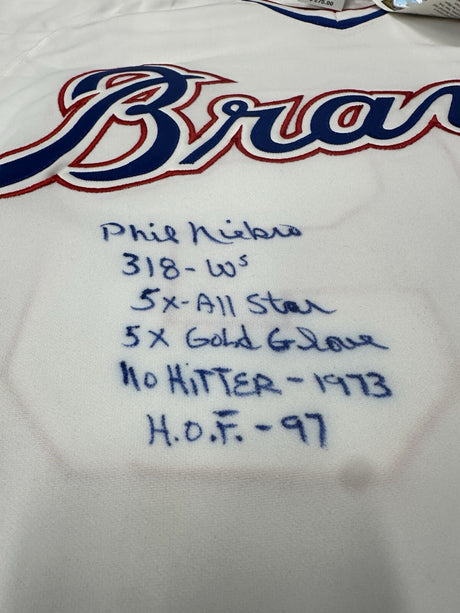 $75.00
Bra
Phil Niekro
318-Ws
5x-All Star
5x Gold Glove
No HiTTER-1973
H.O.F.-97